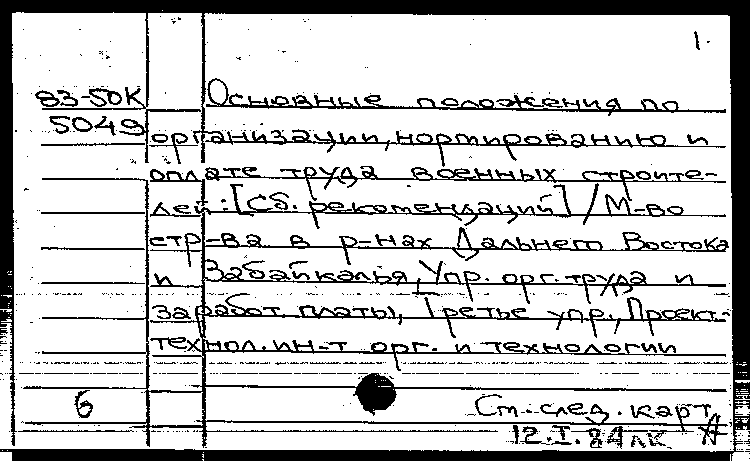 1.
83-50К Основные положения по
5049 организации, нормированию и
оплате труда военных строите-
лей: [Сб. рекомендаций] / М-во
стр-ва в р-нах Дальнего Востока
и Забайкалья, Упр. орг. труда и
заработ. платы, Третье упр., Проект.-
технол. ин-т орг. и технологии
6 См. след. карт.
12.I.84 лк